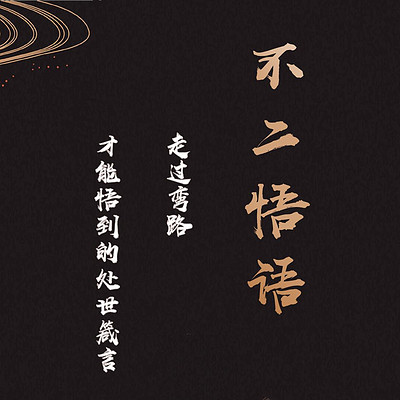 不二悟语
走过弯路
才能悟到的处世箴言